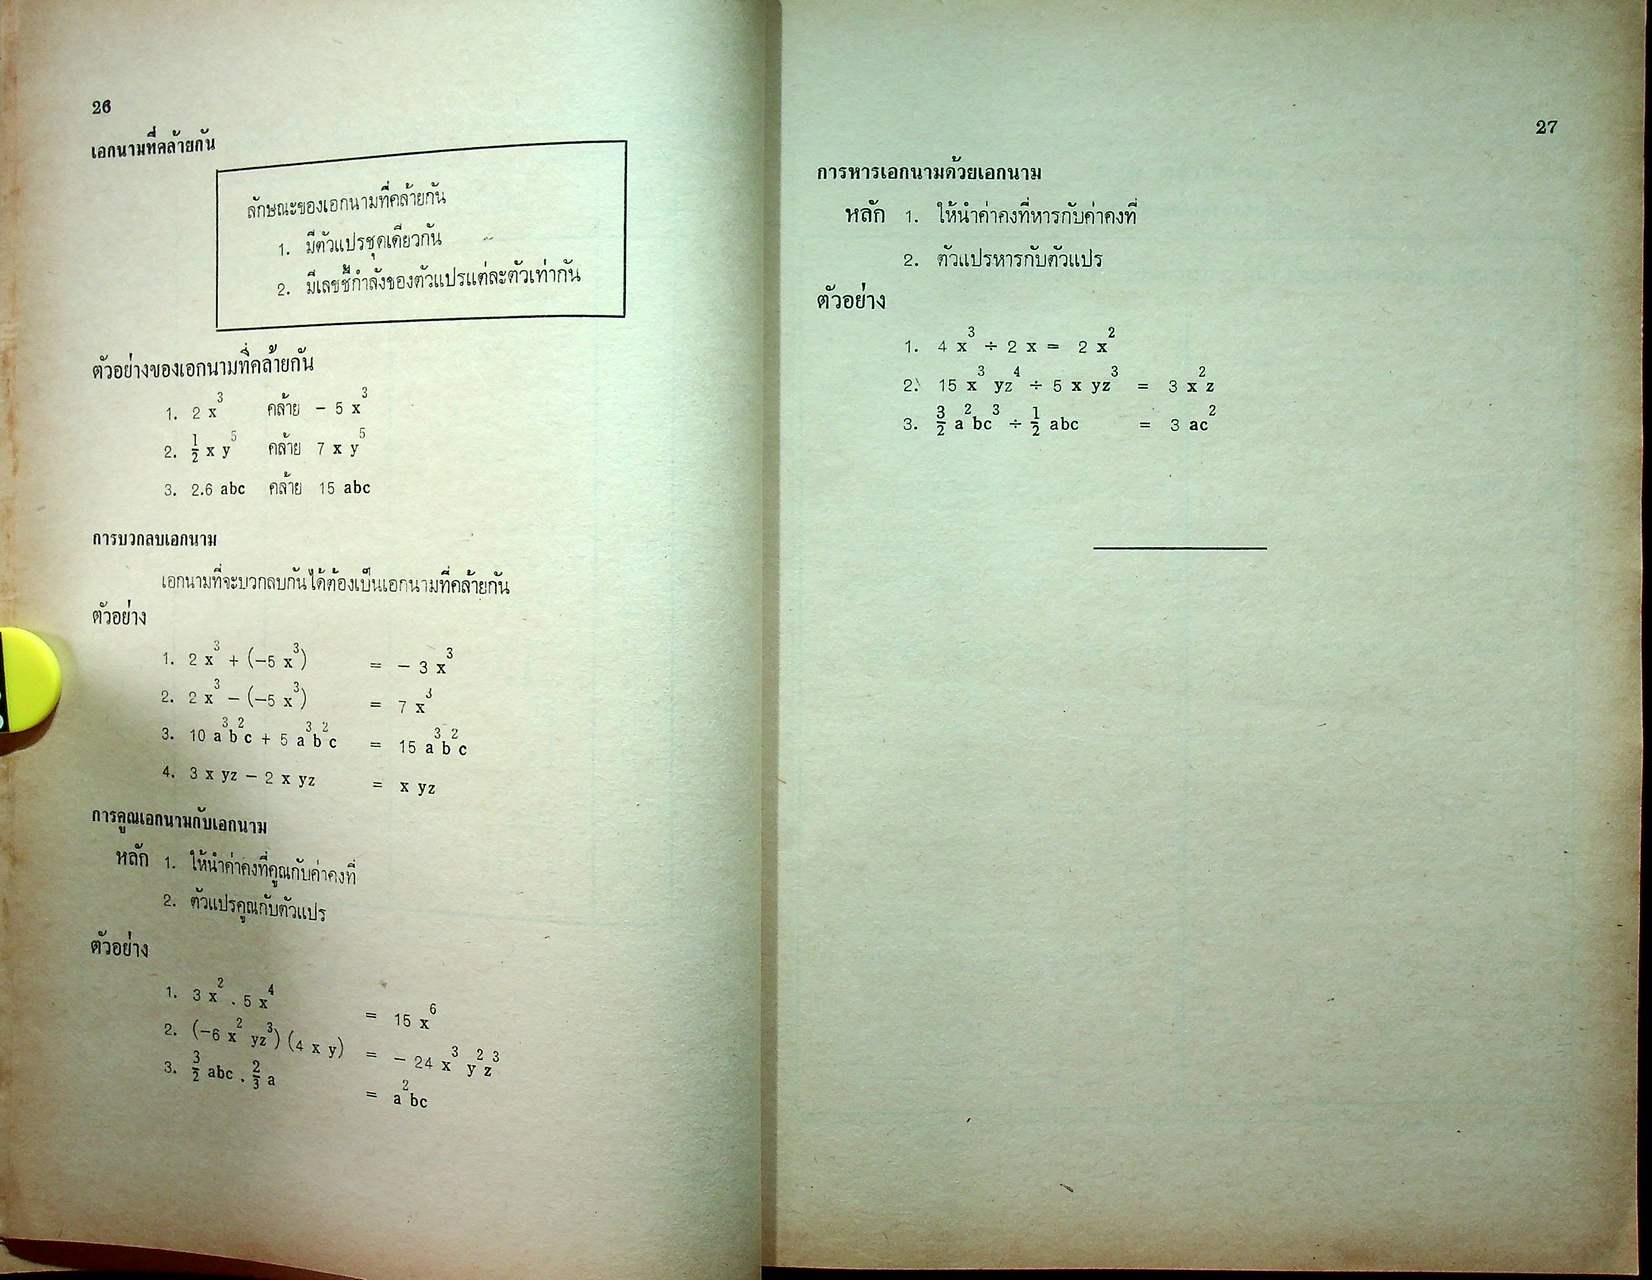 26
เอกนามที่คล้ายกัน
ลักษณะของเอกนามที่คล้ายกัน
1. มีตัวแปรชุดเดียวกัน
2. มีเลขชี้กำลังของตัวแปรแต่ละตัวเท่ากัน
ตัวอย่างของเอกนามที่คล้ายกัน
1. 2 x³ คล้าย − 5 x³
2. ½ x y⁵ คล้าย 7 x y⁵
3. 2.6 abc คล้าย 15 abc
การบวกลบเอกนาม
เอกนามที่จะบวกลบกันได้ต้องเป็นเอกนามที่คล้ายกัน
ตัวอย่าง
1. 2 x³ + (−5 x³) = − 3 x³
2. 2 x³ − (−5 x³) = 7 x³
3. 10 a³b²c + 5 a³b²c = 15 a³b²c
4. 3 x yz − 2 x yz = x yz
การคูณเอกนามกับเอกนาม
หลัก 1. ให้นำค่าคงที่คูณกับค่าคงที่
2. ตัวแปรคูณกับตัวแปร
ตัวอย่าง
1. 3 x² . 5 x⁴ = 15 x⁶
2. (−6 x² yz³) (4 x y) = − 24 x³ y² z³
3. 3/2 abc . 2/3 a = a²bc
27
การหารเอกนามด้วยเอกนาม
หลัก 1. ให้นำค่าคงที่หารกับค่าคงที่
2. ตัวแปรหารกับตัวแปร
ตัวอย่าง
1. 4 x³ ÷ 2 x = 2 x²
2. 15 x³ yz⁴ ÷ 5 x yz³ = 3 x² z
3. 3/2 a²bc³ ÷ ½ abc = 3 ac²